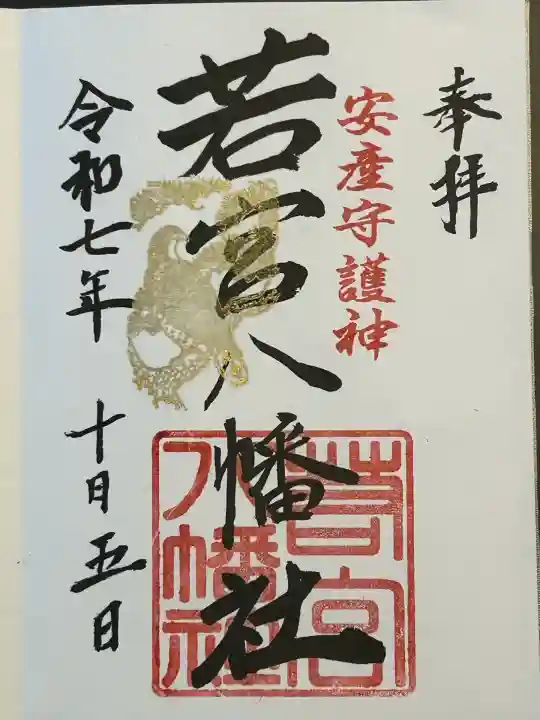 奉拝
安産守護神
若宮八幡社
若宮
八幡社
令和七年 十月五日